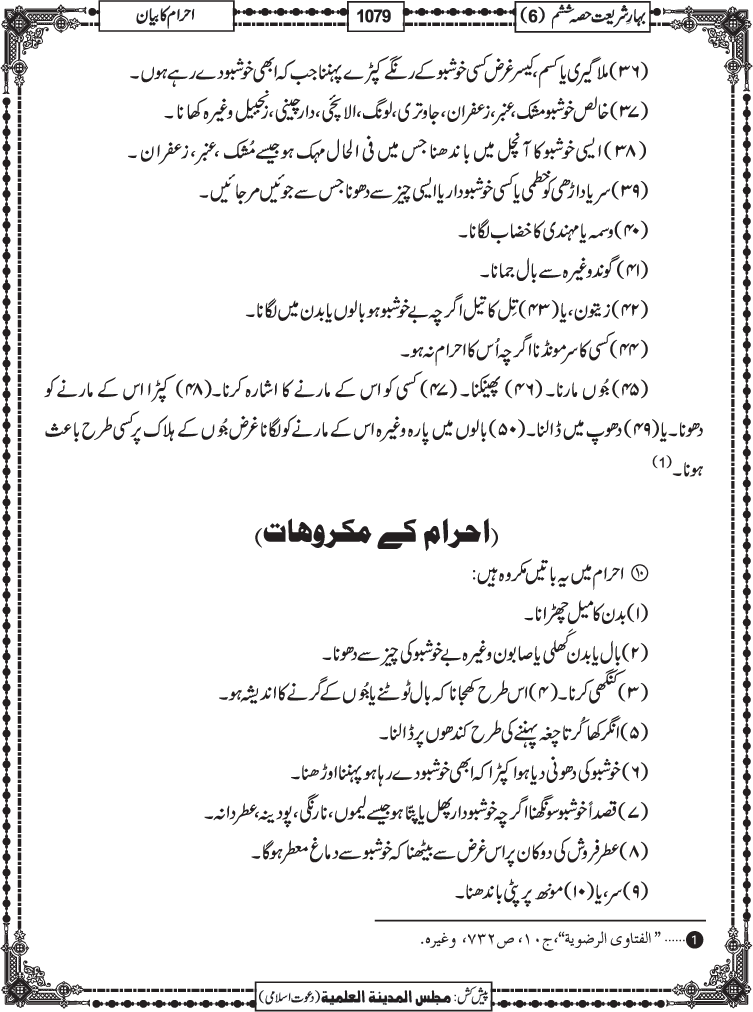 بہار شریعت حصہ ششم (6)
1079
احرام کا بیان
(۳۶) ملا گیری یا کسم، کیسر غرض کسی خوشبو کے رنگے کپڑے پہننا جب کہ ابھی خوشبو دے رہے ہوں۔
(۳۷) خالص خوشبو مشک، عنبر، زعفران، جاوتری، لونگ، الائچی، دارچینی، زنجبیل وغیرہ کھانا۔
(۳۸) ایسی خوشبو کا آنچل میں باندھنا جس میں فی الحال مہک ہو جیسے مُشک، عنبر، زعفران ۔
(۳۹) سر یا داڑھی کو خطمی یا کسی خوشبودار یا ایسی چیز سے دھونا جس سے جوئیں مر جائیں۔
(۴۰) وسمہ یا مہندی کا خضاب لگانا۔
(۴۱) گوند وغیرہ سے بال جمانا۔
(۴۲) زیتون، یا (۴۳) تِل کا تیل اگرچہ بے خوشبو ہو بالوں یا بدن میں لگانا۔
(۴۴) کسی کا سر مونڈنا اگرچہ اُس کا احرام نہ ہو۔
(۴۵) جُوں مارنا۔ (۴۶) پھینکنا۔ (۴۷) کسی کو اس کے مارنے کا اشارہ کرنا۔ (۴۸) کپڑا اس کے مارنے کو
دھونا۔ یا (۴۹) دھوپ میں ڈالنا۔ (۵۰) بالوں میں پارہ وغیرہ اس کے مارنے کو لگانا غرض جُوں کے ہلاک پر کسی طرح باعث
ہونا۔ (1)
(احرام کے مکروہات)
⑩ احرام میں یہ باتیں مکروہ ہیں:
(۱) بدن کا میل چھڑانا۔
(۲) بال یا بدن کَھلی یا صابون وغیرہ بے خوشبو کی چیز سے دھونا۔
(۳) کنگھی کرنا۔ (۴) اس طرح کھجانا کہ بال ٹوٹنے یا جُوں کے گرنے کا اندیشہ ہو۔
(۵) انگرکھا کُرتا چغہ پہننے کی طرح کندھوں پر ڈالنا۔
(۶) خوشبو کی دھونی دیا ہوا کپڑا کہ ابھی خوشبو دے رہا ہو پہننا اوڑھنا۔
(۷) قصداً خوشبو سونگھنا اگرچہ خوشبودار پھل یا پتّا ہو جیسے لیموں، نارنگی، پودینہ، عطردانہ۔
(۸) عطر فروش کی دوکان پر اس غرض سے بیٹھنا کہ خوشبو سے دماغ معطر ہوگا۔
(۹) سر، یا (۱۰) مونھ پر پٹی باندھنا۔
1 ...... "الفتاوی الرضویة"، ج١٠، ص٧٣٢، وغیرہ.
پیش کش: مجلس المدينة العلمية (دعوت اسلامی)